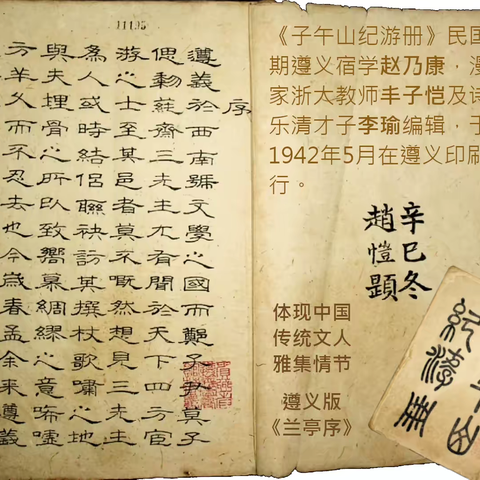 11195
序
遵義於西南號文學之國而鄭子尹莫子
偲黎蒓齋三先生尤有聞於天下四方宦
游之士至其邑者莫不嘅然想見三先生
為人或時結侶聯袂訪其撰杖歌嘯之地
與夫埋骨之所以致嚮慕綢繆之意唏噓
方羊久而不忍去也今歲春孟余來遵義
《子午山纪游册》民国
期遵义宿学赵乃康，漫
家浙大教师丰子恺及诗
乐清才子李瑜编辑，于
1942年5月在遵义印刷
行。
辛巳冬
趙愷題
体现中国
传统文人
雅集情节
遵义版
《兰亭序》
午山
紀游册